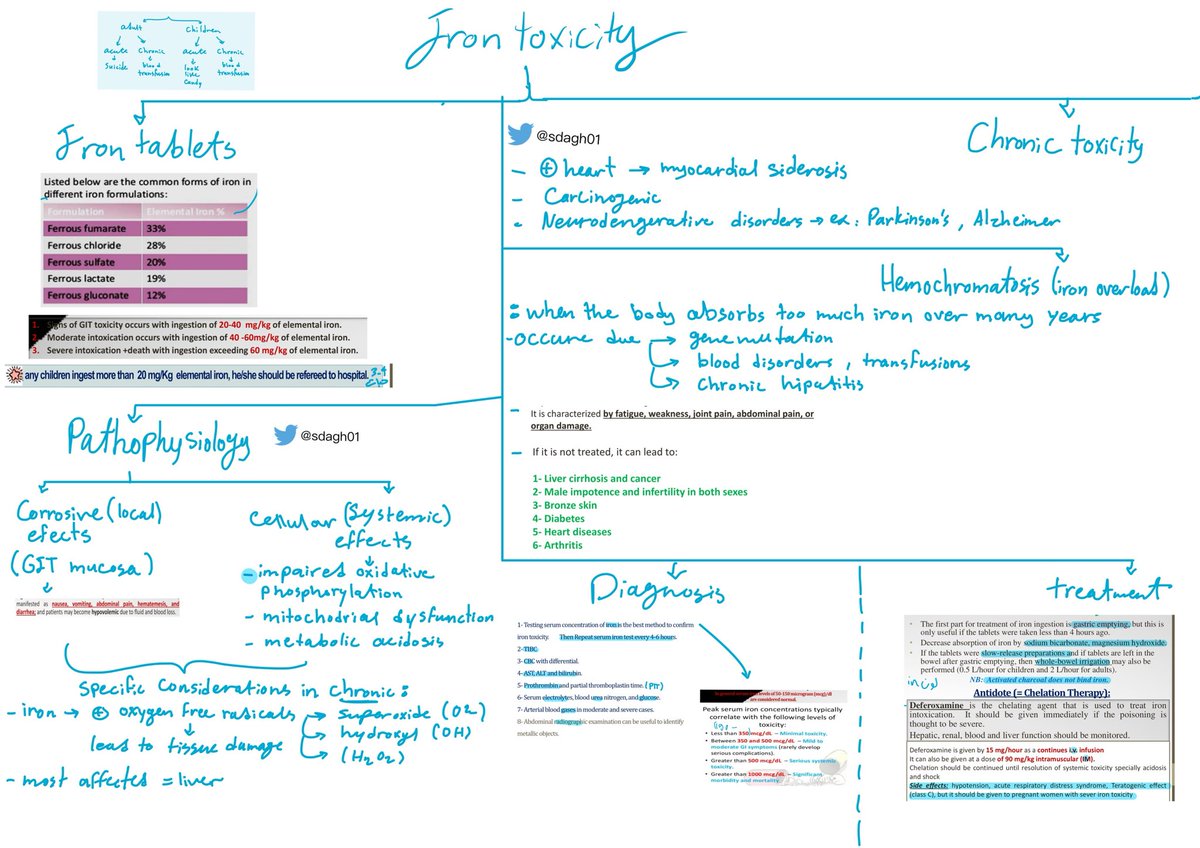 Iron toxicity
adult
children
acute
chronic
acute
chronic
suicide
blood
transfusion
look
like
candy
blood
transfusion
Iron tablets
Listed below are the common forms of iron in
different iron formulations:
Formulation Elemental Iron %
Ferrous fumarate 33%
Ferrous chloride 28%
Ferrous sulfate 20%
Ferrous lactate 19%
Ferrous gluconate 12%
1. Signs of GIT toxicity occurs with ingestion of 20-40 mg/kg of elemental iron.
2. Moderate intoxication occurs with ingestion of 40 -60mg/kg of elemental iron.
3. Severe intoxication +death with ingestion exceeding 60 mg/kg of elemental iron.
any children ingest more than 20 mg/Kg elemental iron, he/she should be refereed to hospital.
Pathophysiology
@sdagh01
Corrosive (local)
efects
(GIT mucosa)
manifested as nausea, vomiting, abdominal pain, hematemesis, and
diarrhea; and patients may become hypovolemic due to fluid and blood loss.
Cellular (Systemic)
effects
- impaired oxidative
phosphorylation
- mitochodrial dysfunction
- metabolic acidosis
Specific Considerations in chronic:
- iron → ⊕ oxygen free radicals
lead to tissue damage
superoxide (O2)
hydroxyl (OH)
(H2O2)
- most affected = liver
@sdagh01
Chronic toxicity
- ⊕ heart → myocardial siderosis
- Carcinogenic
- Neurodengerative disorders → ex: Parkinson's, Alzheimer
Hemochromatosis (iron overload)
: when the body absorbs too much iron over many years
- occure due
gene mutation
blood disorders, transfusions
chronic hipatitis
- It is characterized by fatigue, weakness, joint pain, abdominal pain, or
organ damage.
- If it is not treated, it can lead to:
1- Liver cirrhosis and cancer
2- Male impotence and infertility in both sexes
3- Bronze skin
4- Diabetes
5- Heart diseases
6- Arthritis
Diagnosis
1- Testing serum concentration of iron is the best method to confirm
iron toxicity. Then Repeat serum iron test every 4-6 hours.
2-TIBC.
3- CBC with differential.
4-AST, ALT and bilirubin.
5- Prothrombin and partial thromboplastin time. (PTT)
6- Serum electrolytes, blood urea nitrogen, and glucose.
7- Arterial blood gases in moderate and severe cases.
8- Abdominal radiographic examination can be useful to identify
metallic objects.
In general serum iron levels of 50-150 microgram (mcg)/dl
are considered normal.
Peak serum iron concentrations typically
correlate with the following levels of
toxicity:
• Less than 350 mcg/dL – Minimal toxicity.
• Between 350 and 500 mcg/dL – Mild to
moderate GI symptoms (rarely develop
serious complications).
• Greater than 500 mcg/dL – Serious systemic
toxicity.
• Greater than 1000 mcg/dL – Significant
morbidity and mortality.
treatment
• The first part for treatment of iron ingestion is gastric emptying, but this is
only useful if the tablets were taken less than 4 hours ago.
• Decrease absorption of iron by sodium bicarbonate, magnesium hydroxide.
• If the tablets were slow-release preparations and if tablets are left in the
bowel after gastric emptying, then whole-bowel irrigation may also be
performed (0.5 L/hour for children and 2 L/hour for adults).
NB: Activated charcoal does not bind iron.
Antidote (= Chelation Therapy):
Deferoxamine is the chelating agent that is used to treat iron
intoxication. It should be given immediately if the poisoning is
thought to be severe.
Hepatic, renal, blood and liver function should be monitored.
Deferoxamine is given by 15 mg/hour as a continues i.v. infusion
It can also be given at a dose of 90 mg/kg intramuscular (IM).
Chelation should be continued until resolution of systemic toxicity specially acidosis
and shock
Side effects: hypotension, acute respiratory distress syndrome, Teratogenic effect
(class C), but it should be given to pregnant women with sever iron toxicity